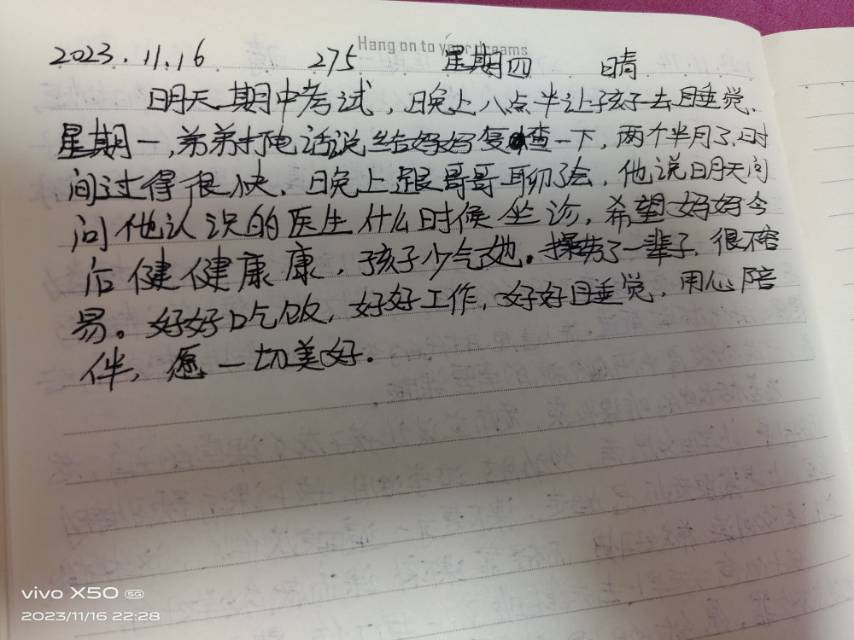 Hang on to your dreams
2023.11.16 275 星期四 晴
明天期中考试，晚上八点半让孩子去睡觉.
星期一,弟弟打电话说给好好复查一下,两个半月了,时
间过得很快.晚上跟哥哥聊了会,他说明天问
问他认识的医生什么时候坐诊,希望好好今
后健健康康,孩子少气她。操劳了一辈子,很不容
易。好好吃饭,好好工作,好好睡觉,用心陪
伴,愿一切美好.
vivo X50 5G
2023/11/16 22:28